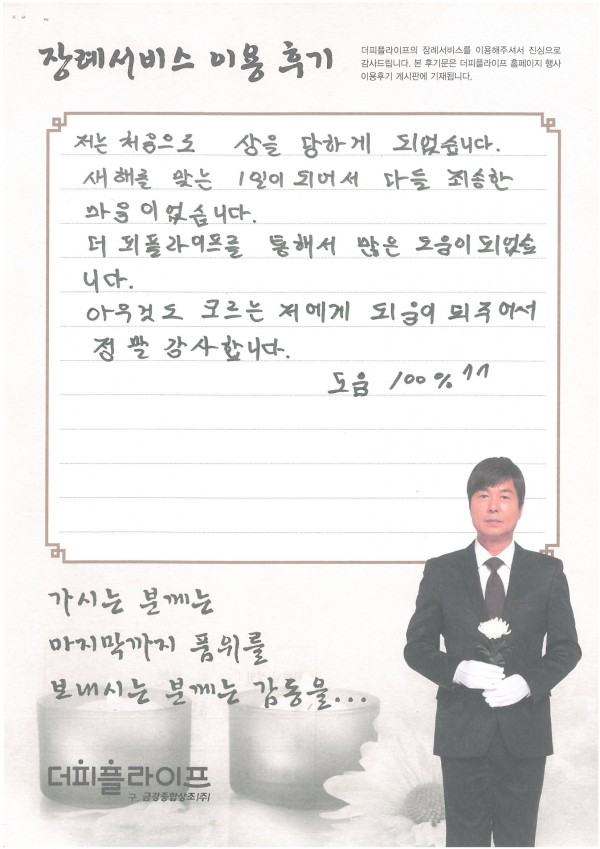 장례서비스 이용 후기
더피플라이프의 장례서비스를 이용해주셔서 진심으로
감사드립니다. 본 후기문은 더피플라이프 홈페이지 행사
이용후기 게시판에 기재됩니다.
저는 처음으로 상을 당하게 되었습니다.
새해를 맞는 1일이 되어서 다들 죄송한
마음이었습니다.
더 피플라이프를 통해서 많은 도움이 되었습
니다.
아무것도 모르는 저에게 도움이 되주어서
정말 감사합니다.
도움 100%^^
가시는 분께는
마지막까지 품위를
보내시는 분께는 감동을...
더피플라이프
구. 금강종합상조(주)